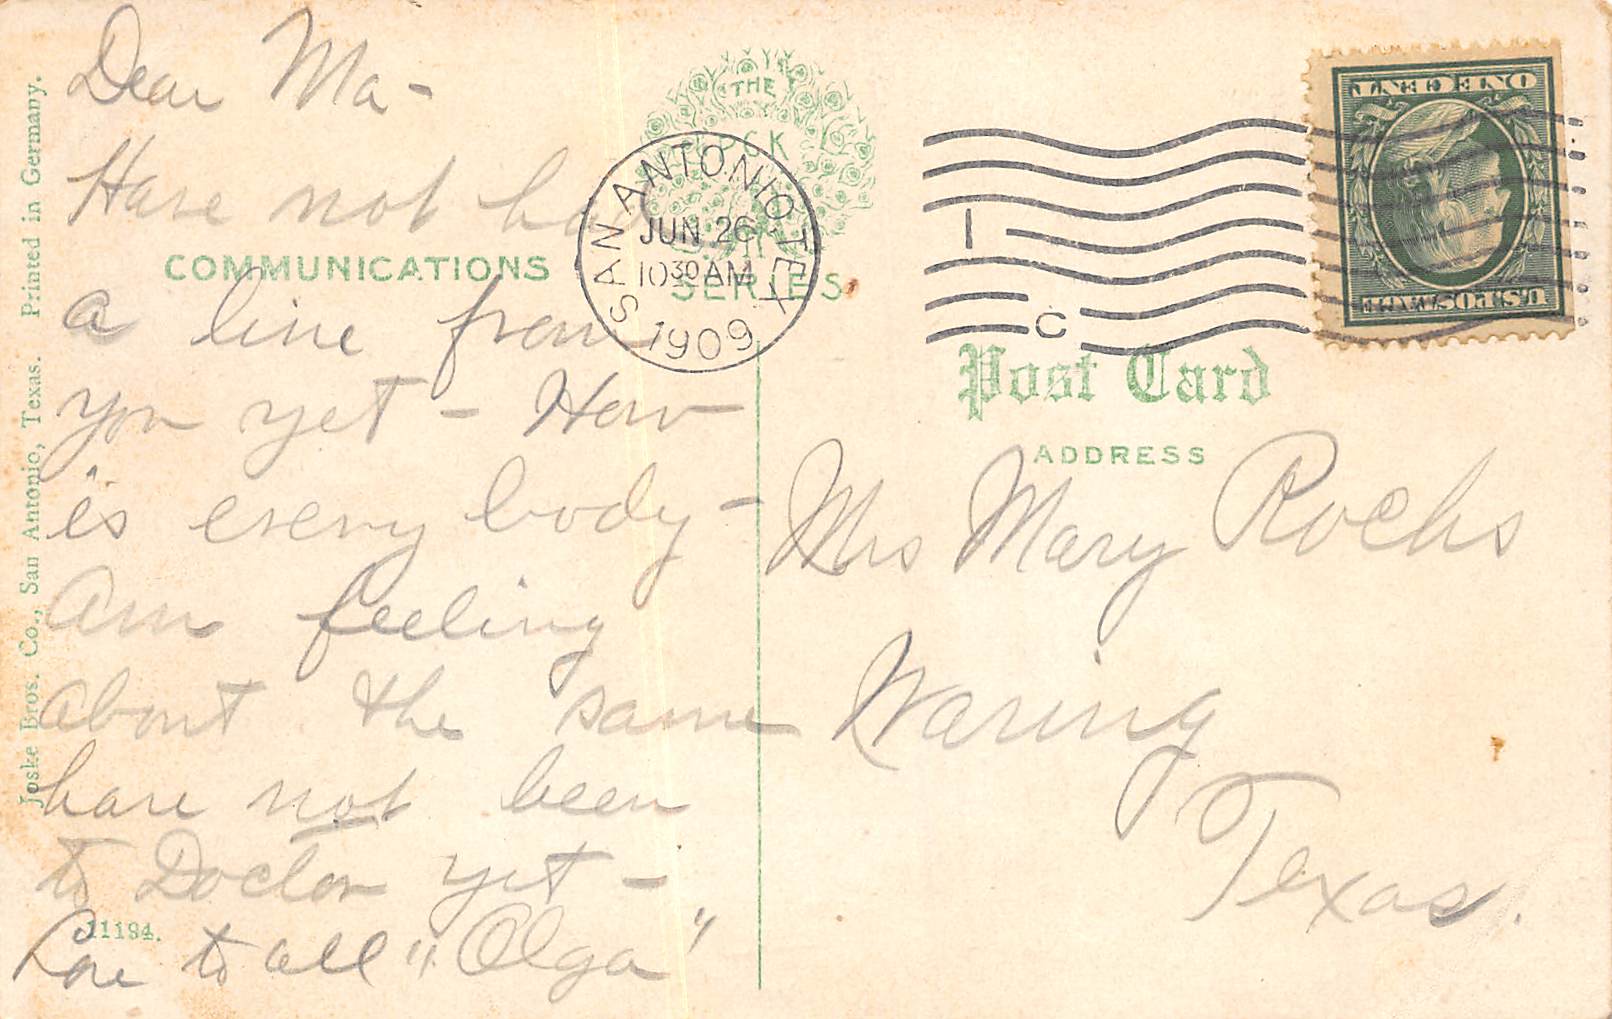 Dear Ma-
Have not had
a line from
you yet - How
is every body -
Am feeling
about the same
have not been
to Doctor yet -
Love to all "Olga"
COMMUNICATIONS
11194.
Joske Bros. Co., San Antonio, Texas. Printed in Germany.
THE
SERIES
SAN ANTONIO TEX
JUN 26
10 30 AM
1909
1
C
ONE CENT
U.S. POSTAGE
Post Card
ADDRESS
Mrs Mary Rochs
Waring
Texas.